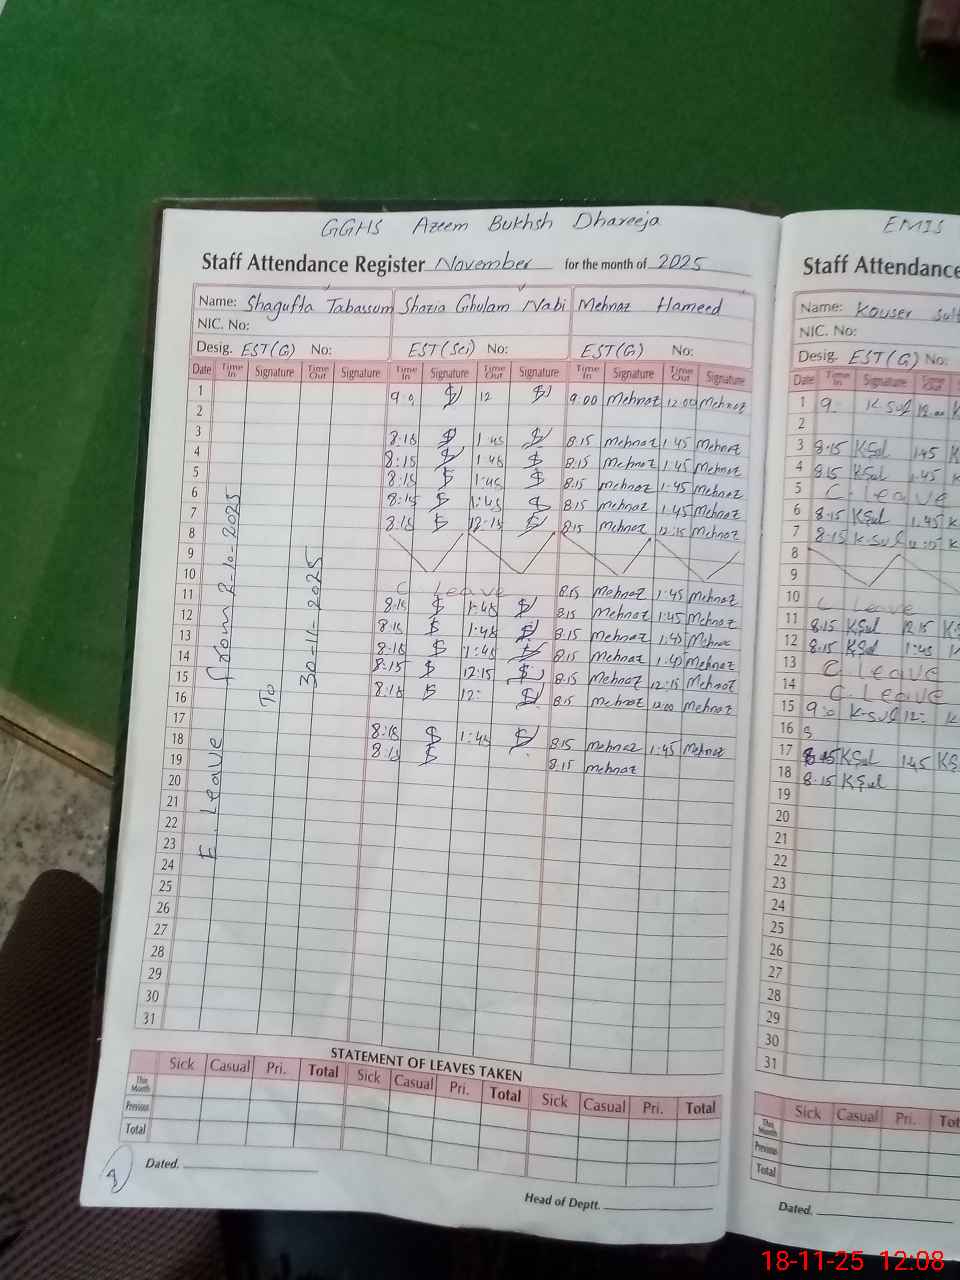 GGHS Azeem Bukhsh Dhareeja
Staff Attendance Register November for the month of 2025
Name: Shagufta Tabassum Shazia Ghulam Nabi Mehnaz Hameed
NIC. No:
Desig. EST(G) No: EST(Sci) No: EST(G) No:
Date Time In Signature Time Out Signature Time In Signature Time Out Signature Time In Signature Time Out Signature
1 9:0 12 9:00 Mehnaz 12:00 Mehnaz
2
3 8:15 1:45 8:15 Mehnaz 1:45 Mehnaz
4 8:15 1:45 8:15 Mehnaz 1:45 Mehnaz
5 8:15 1:45 8:15 Mehnaz 1:45 Mehnaz
6 8:15 1:45 8:15 Mehnaz 1:45 Mehnaz
7 8:15 12:15 8:15 Mehnaz 12:15 Mehnaz
8
9
10 C Leave 8:15 Mehnaz 1:45 Mehnaz
11 8:15 1:45 8:15 Mehnaz 1:45 Mehnaz
12 8:15 1:45 8:15 Mehnaz 1:45 Mehnaz
13 8:15 1:45 8:15 Mehnaz 1:45 Mehnaz
14 8:15 12:15 8:15 Mehnaz 12:15 Mehnaz
15 8:15 12: 8:15 Mehnaz 12:00 Mehnaz
16
17 8:15 1:45 8:15 Mehnaz 1:45 Mehnaz
18 8:15 8:15 Mehnaz
19
20
21
22
23
24
25
26
27
28
29
30
31
E. Leave from 2-10-2025
To
30-11-2025
STATEMENT OF LEAVES TAKEN
Sick Casual Pri. Total Sick Casual Pri. Total Sick Casual Pri. Total
This Month
Previous
Total
Dated.
Head of Deptt.
EMIS
Staff Attendance
Name: Kouser Sul
NIC. No:
Desig. EST(G) No:
Date Time In Signature Time Out
1 9: K Sul 12:00 K
2
3 8:15 KSul 1:45 K
4 8:15 KSul 1:45 K
5 C. Leave
6 8:15 KSul 1:45 K
7 8:15 K-Sul 12:15 K
8
9
10 C Leave
11 8:15 KSul 12:15 KS
12 8:15 KSul 1:45 K
13 C Leave
14 C. Leave
15 9:0 K-Sul 12: K
16
17 8:15 KSul 1:45 KS
18 8:15 KSul
19
20
21
22
23
24
25
26
27
28
29
30
31
Sick Casual Pri. Tot
This Month
Previous
Total
Dated.
18-11-25 12:08